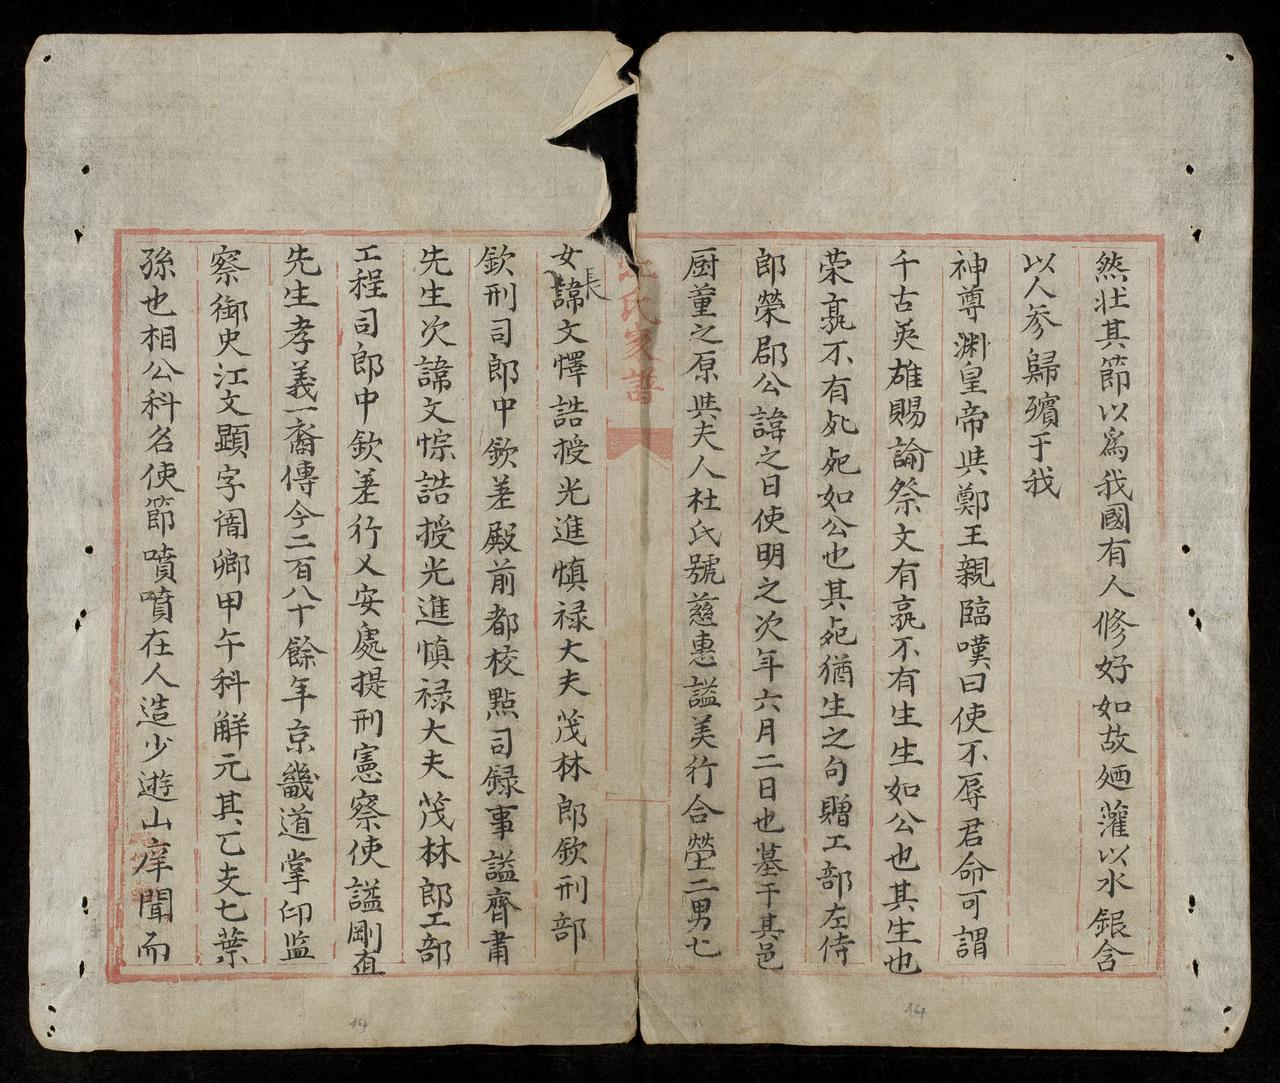 然壯其節以爲我國有人修好如故廼灌以水銀含
以人參歸殯于我
神尊淵皇帝与鄭王親臨嘆曰使不辱君命可謂
千古英雄賜諭祭文有亮不有生生如公也其生也
荣亮不有死死如公也其死猶生之句贈工部左侍
郎榮郡公諱之日使明之次年六月二日也墓于其邑
厨董之原与夫人杜氏號慈惠謚美行合塋二男七
女長諱文懌誥授光進慎禄大夫茂林郎欽刑部
欽刑司郎中欽差殿前都校點司録事謚齊肅
先生次諱文悰誥授光進慎禄大夫茂林郎工部
工程司郎中欽差行乂安處提刑憲察使謚剛直
先生孝義一裔傳今二百八十餘年京畿道掌印監
察御史江文顕字誾卿甲午科解元其乙支七葉
孫也相公科名使節嘖嘖在人造少遊山庠聞而
氏家譜
14
14